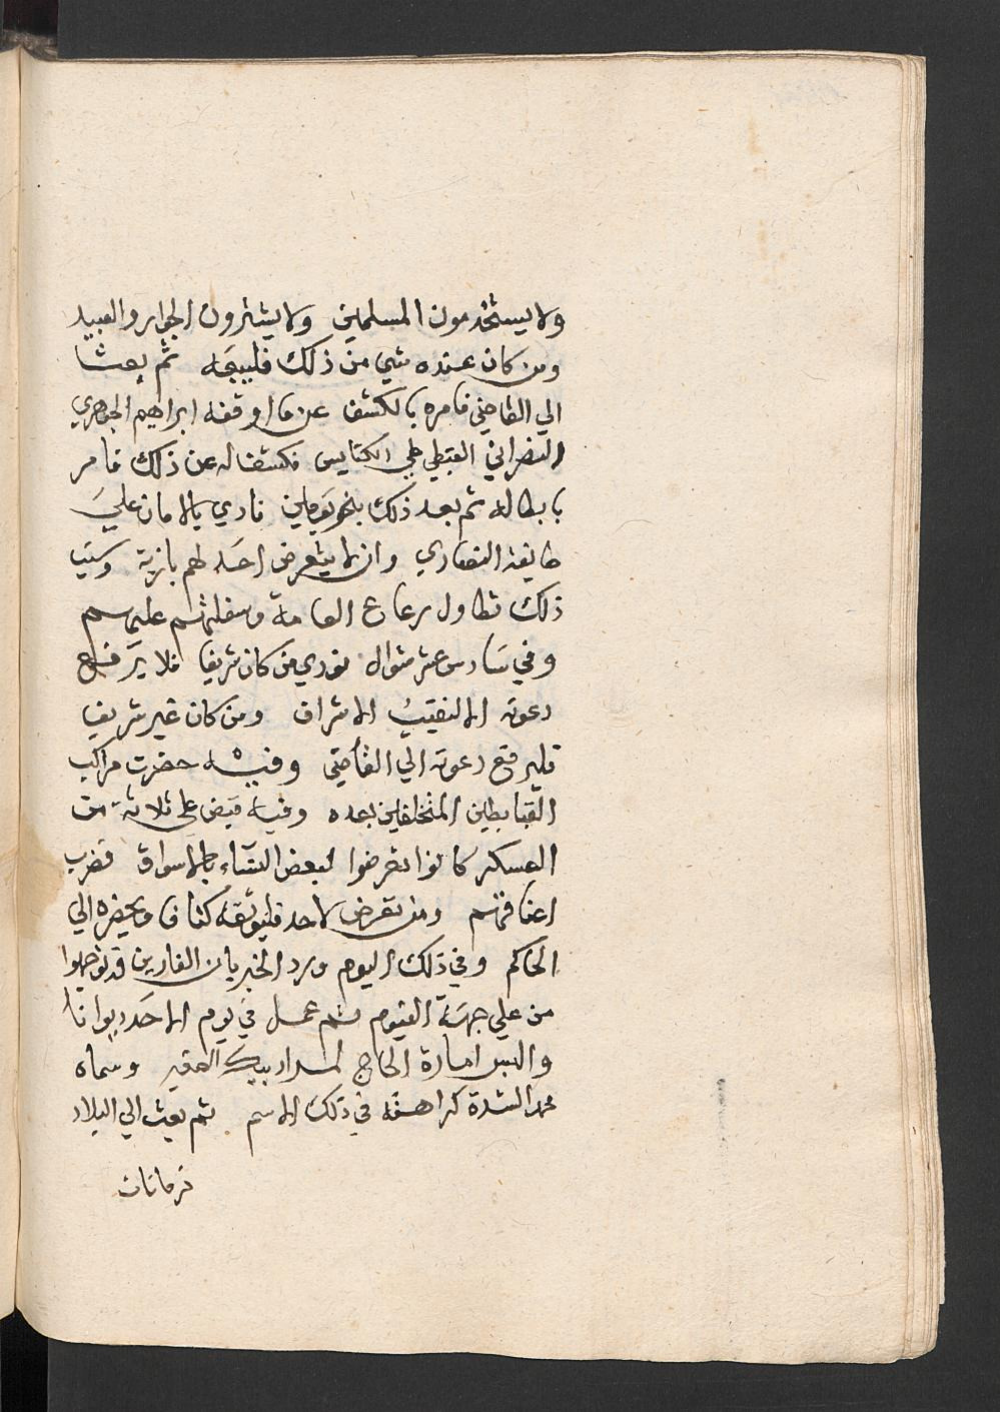 ولا يستخدمون المسلمين ولا يشترون الجوار والعبيد
ومن كان عنده شي من ذلك فليبيعه ثم بعث
الي القاضي فامره بالكشف عن ما اوقفه ابراهيم الجوهري
النصراني القبطي علي الكنايس فكشف له عن ذلك فامر
بابطاله ثم بعد ذلك بنحو يومين نادي بالامان علي
طايفة النصاري وان لا يتعرض احد لهم باذية وسبب
ذلك تطاول رعاع العامة وسفلتهم عليهم
وفي سادس عشر شوال نودي من كان شريفا فلا يرفع
دعوته الا لنقيب الاشراف ومن كان غير شريف
فليرفع دعوته الي القاضي وفيه حضرت مراكب
القباطين المتخلفين بعده وفيه قبض علي ثلاثة من
العسكر كانوا تعرضوا لبعض النساء بالاسواق فضرب
اعناقهم ومن تعرض لاحد فليوثقه كتافا ويحضره الي
الحاكم وفي ذلك اليوم ورد الخبر بان الفارين قد توجهوا
من علي جهة الفيوم ثم عمل في يوم الاحد ديوانا
والبس امارة الحاج لمراد بيك الصغير وسماه
محمد الشدة كراهته في ذلك الاسم ثم بعث الي البلاد
فرمانات